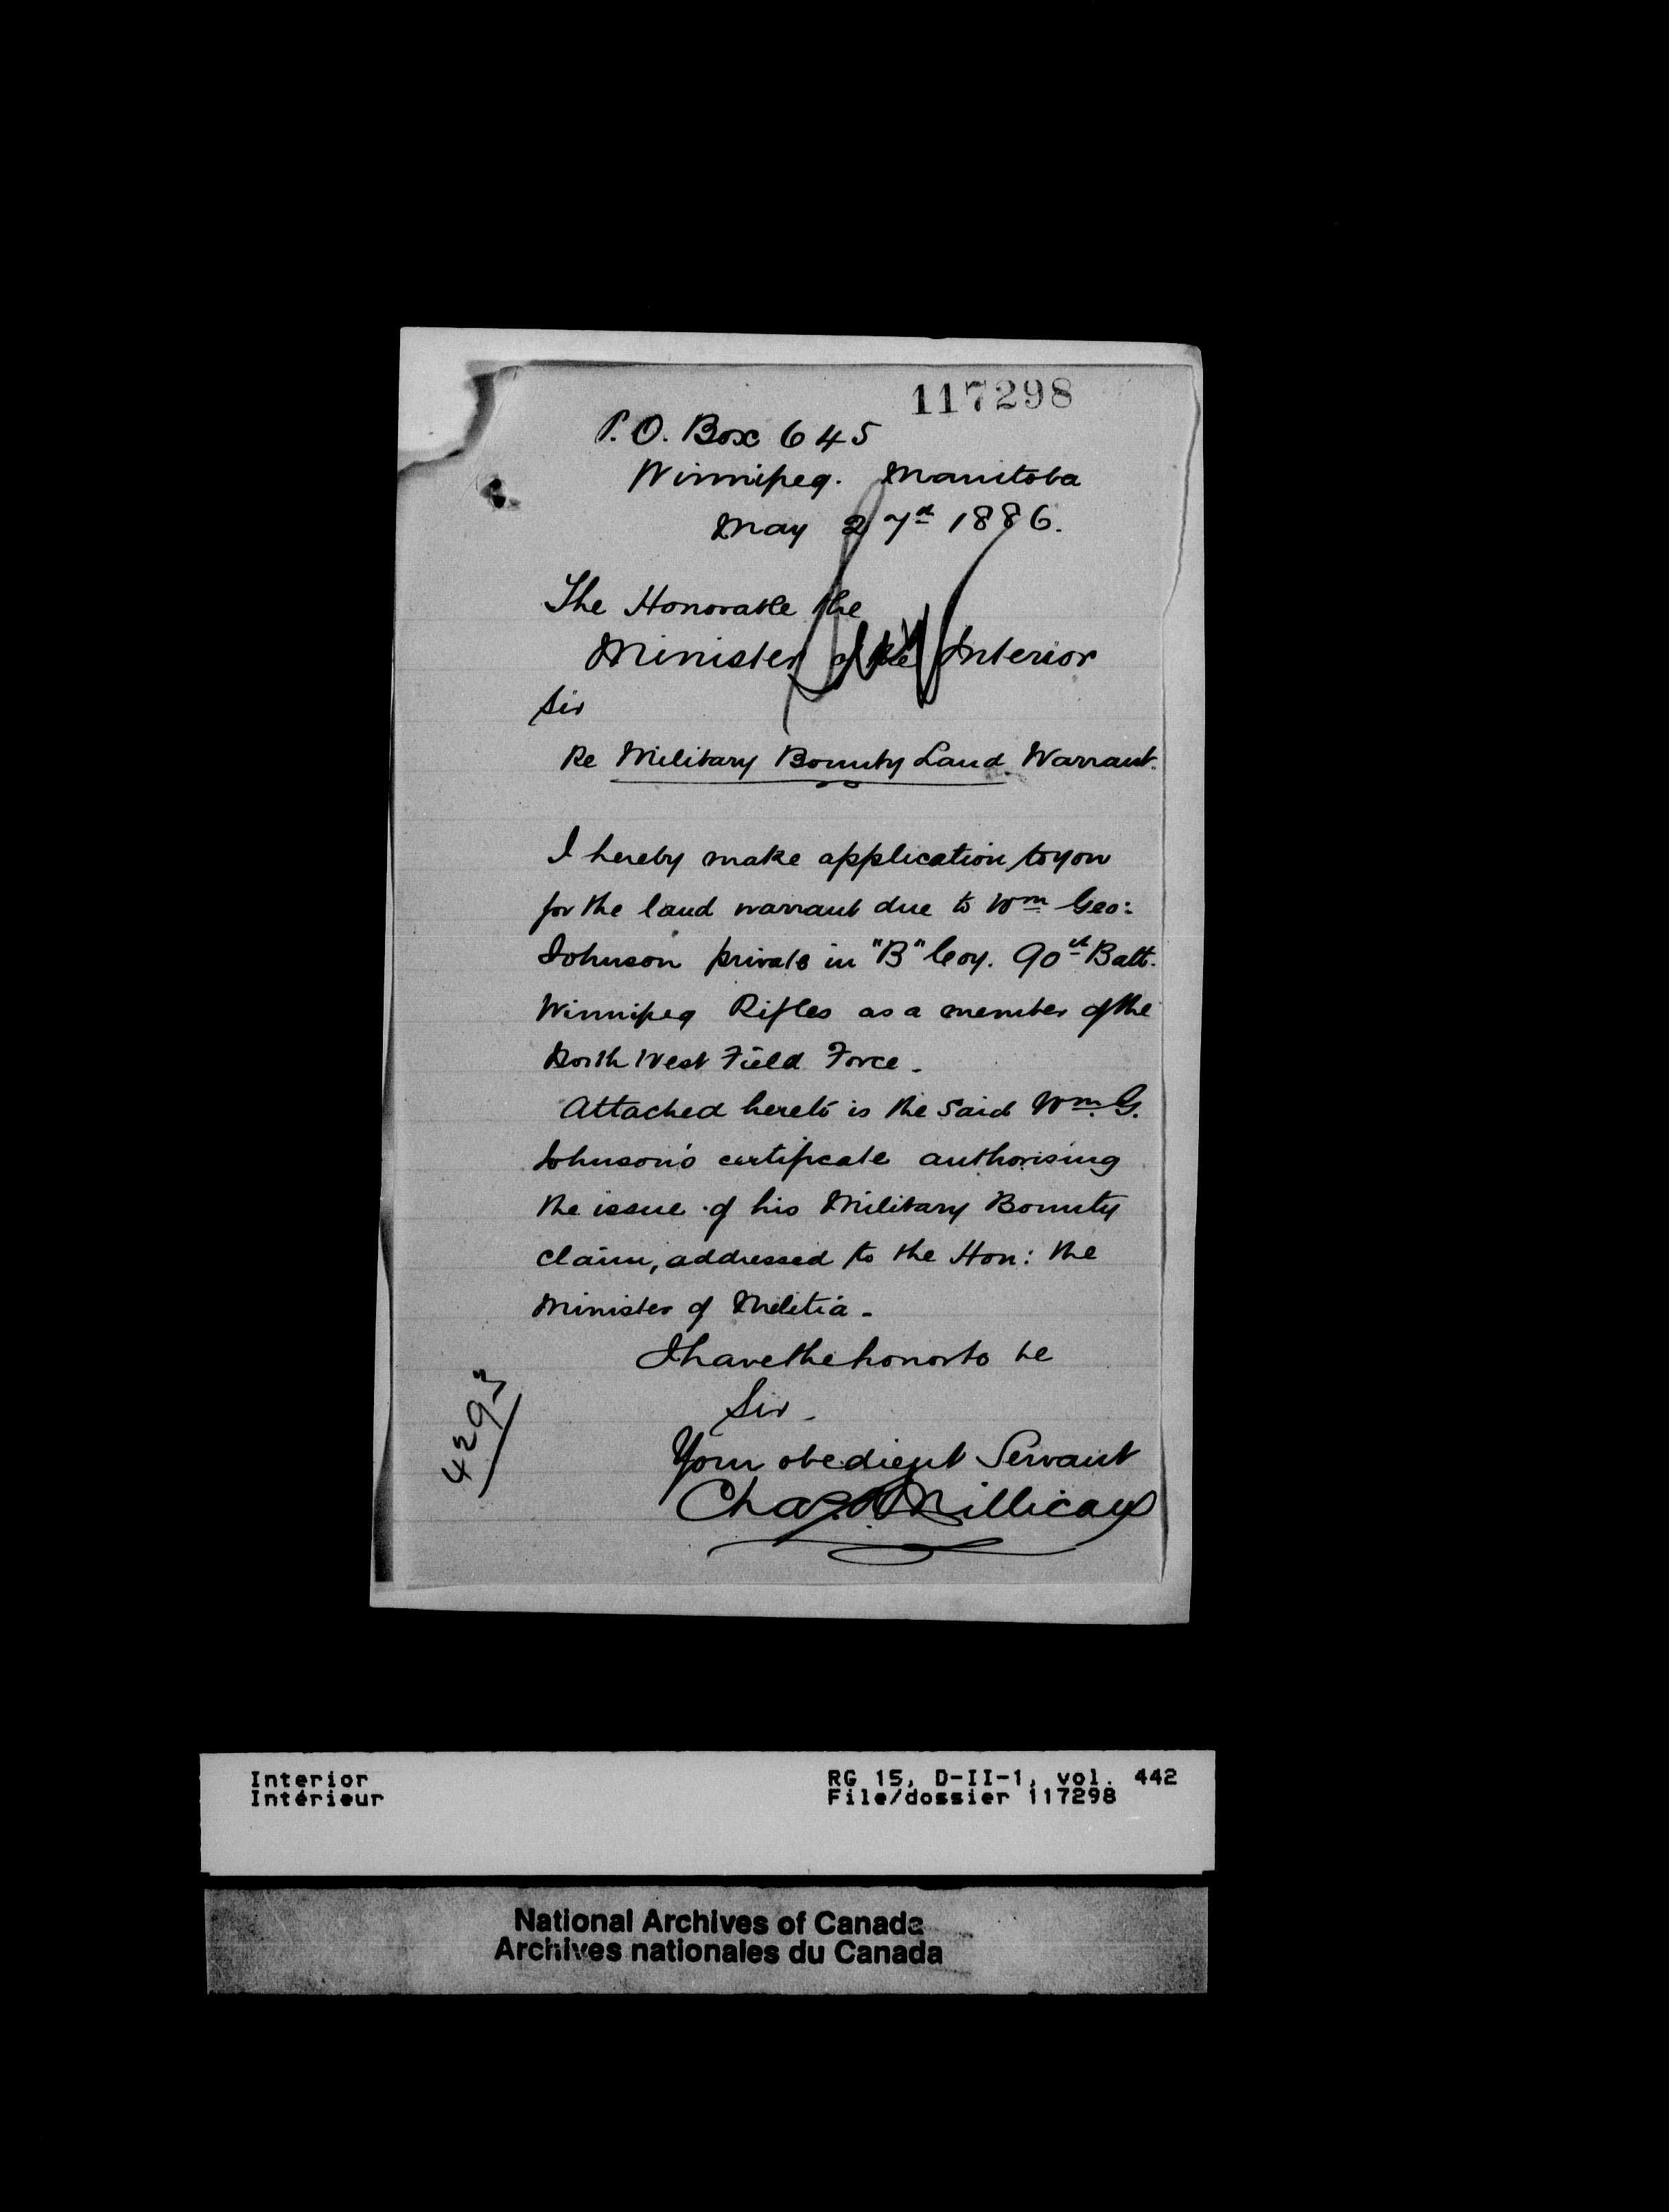 117298
P. O. Box 645
Winnipeg. Manitoba
May 27th 1886.
The Honorable the
Minister of the Interior
Sir
Re Military Bounty Land Warrant.
I hereby make application to you
for the land warrant due to Wm Geo:
Johnson private in "B" Coy. 90th Batt.
Winnipeg Rifles as a member of the
North West Field Force.
Attached hereto is the said Wm. G.
Johnson's certificate authorising
the issue of his Military Bounty
claim, addressed to the Hon: the
Minister of Militia.
I have the honor to be
Sir.
Your obedient Servant
Chas. Millican
Interior
Intérieur
RG 15, D-II-1, vol. 442
File/dossier 117298
National Archives of Canada
Archives nationales du Canada